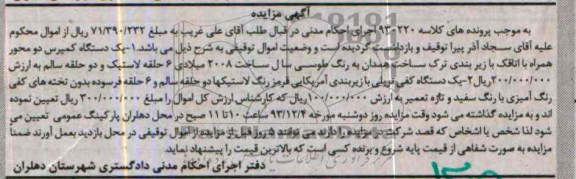 آگهی مزایده
به موجب پرونده های کلاسه ۹۳۰۲۲۰ اجرای احکام مدنی در قبال طلب آقای علی غریب به مبلغ ۷۱/۳۹۰/۲۳۲ ریال از اموال محکوم
علیه آقای سجاد آذر پیرا توقیف و بازداشت گردیده است و وضعیت اموال توقیفی به شرح ذیل می باشد ۱-یک دستگاه کمپرس دو محور
همراه با اتاقک با زیر بندی ترک ساخت همدان به رنگ طوسی سال ساخت ۲۰۰۸ میلادی ۶ حلقه لاستیک و دو حلقه سالم به ارزش
۲۰۰/۰۰۰/۰۰۰ریال ۲-یک دستگاه کفی تریلی با زیربندی آمریکایی قرمز رنگ لاستیکها دو حلقه سالم و ۶ حلقه فرسوده بدون تخته های کفی
رنگ آمیزی با رنگ سفید و تازه تعمیر به ارزش ۱۰۰/۰۰۰/۰۰۰ریال که کارشناس ارزش کل اموال را مبلغ ۳۰۰/۰۰۰/۰۰۰ ریال تعیین نموده
اند و به مزایده گذاشته می شود وقت مزایده روز دوشنبه مورخه ۹۳/۱۲/۴ ساعت ۱۰ تا ۱۱ صبح در محل دهلران پارکینگ عمومی تعیین می
شود لذا شخص یا اشخاص که قصد شرکت در مزایده را دارند می توانند ۵ روز قبل از مزایده از اموال توقیفی در محل بازدید بعمل آورند ضمناً
مزایده به صورت شفاهی از قیمت پایه شروع و برنده کسی است که بالاترین قیمت را پیشنهاد نماید
دفتر اجرای احکام مدنی دادگستری شهرستان دهلران